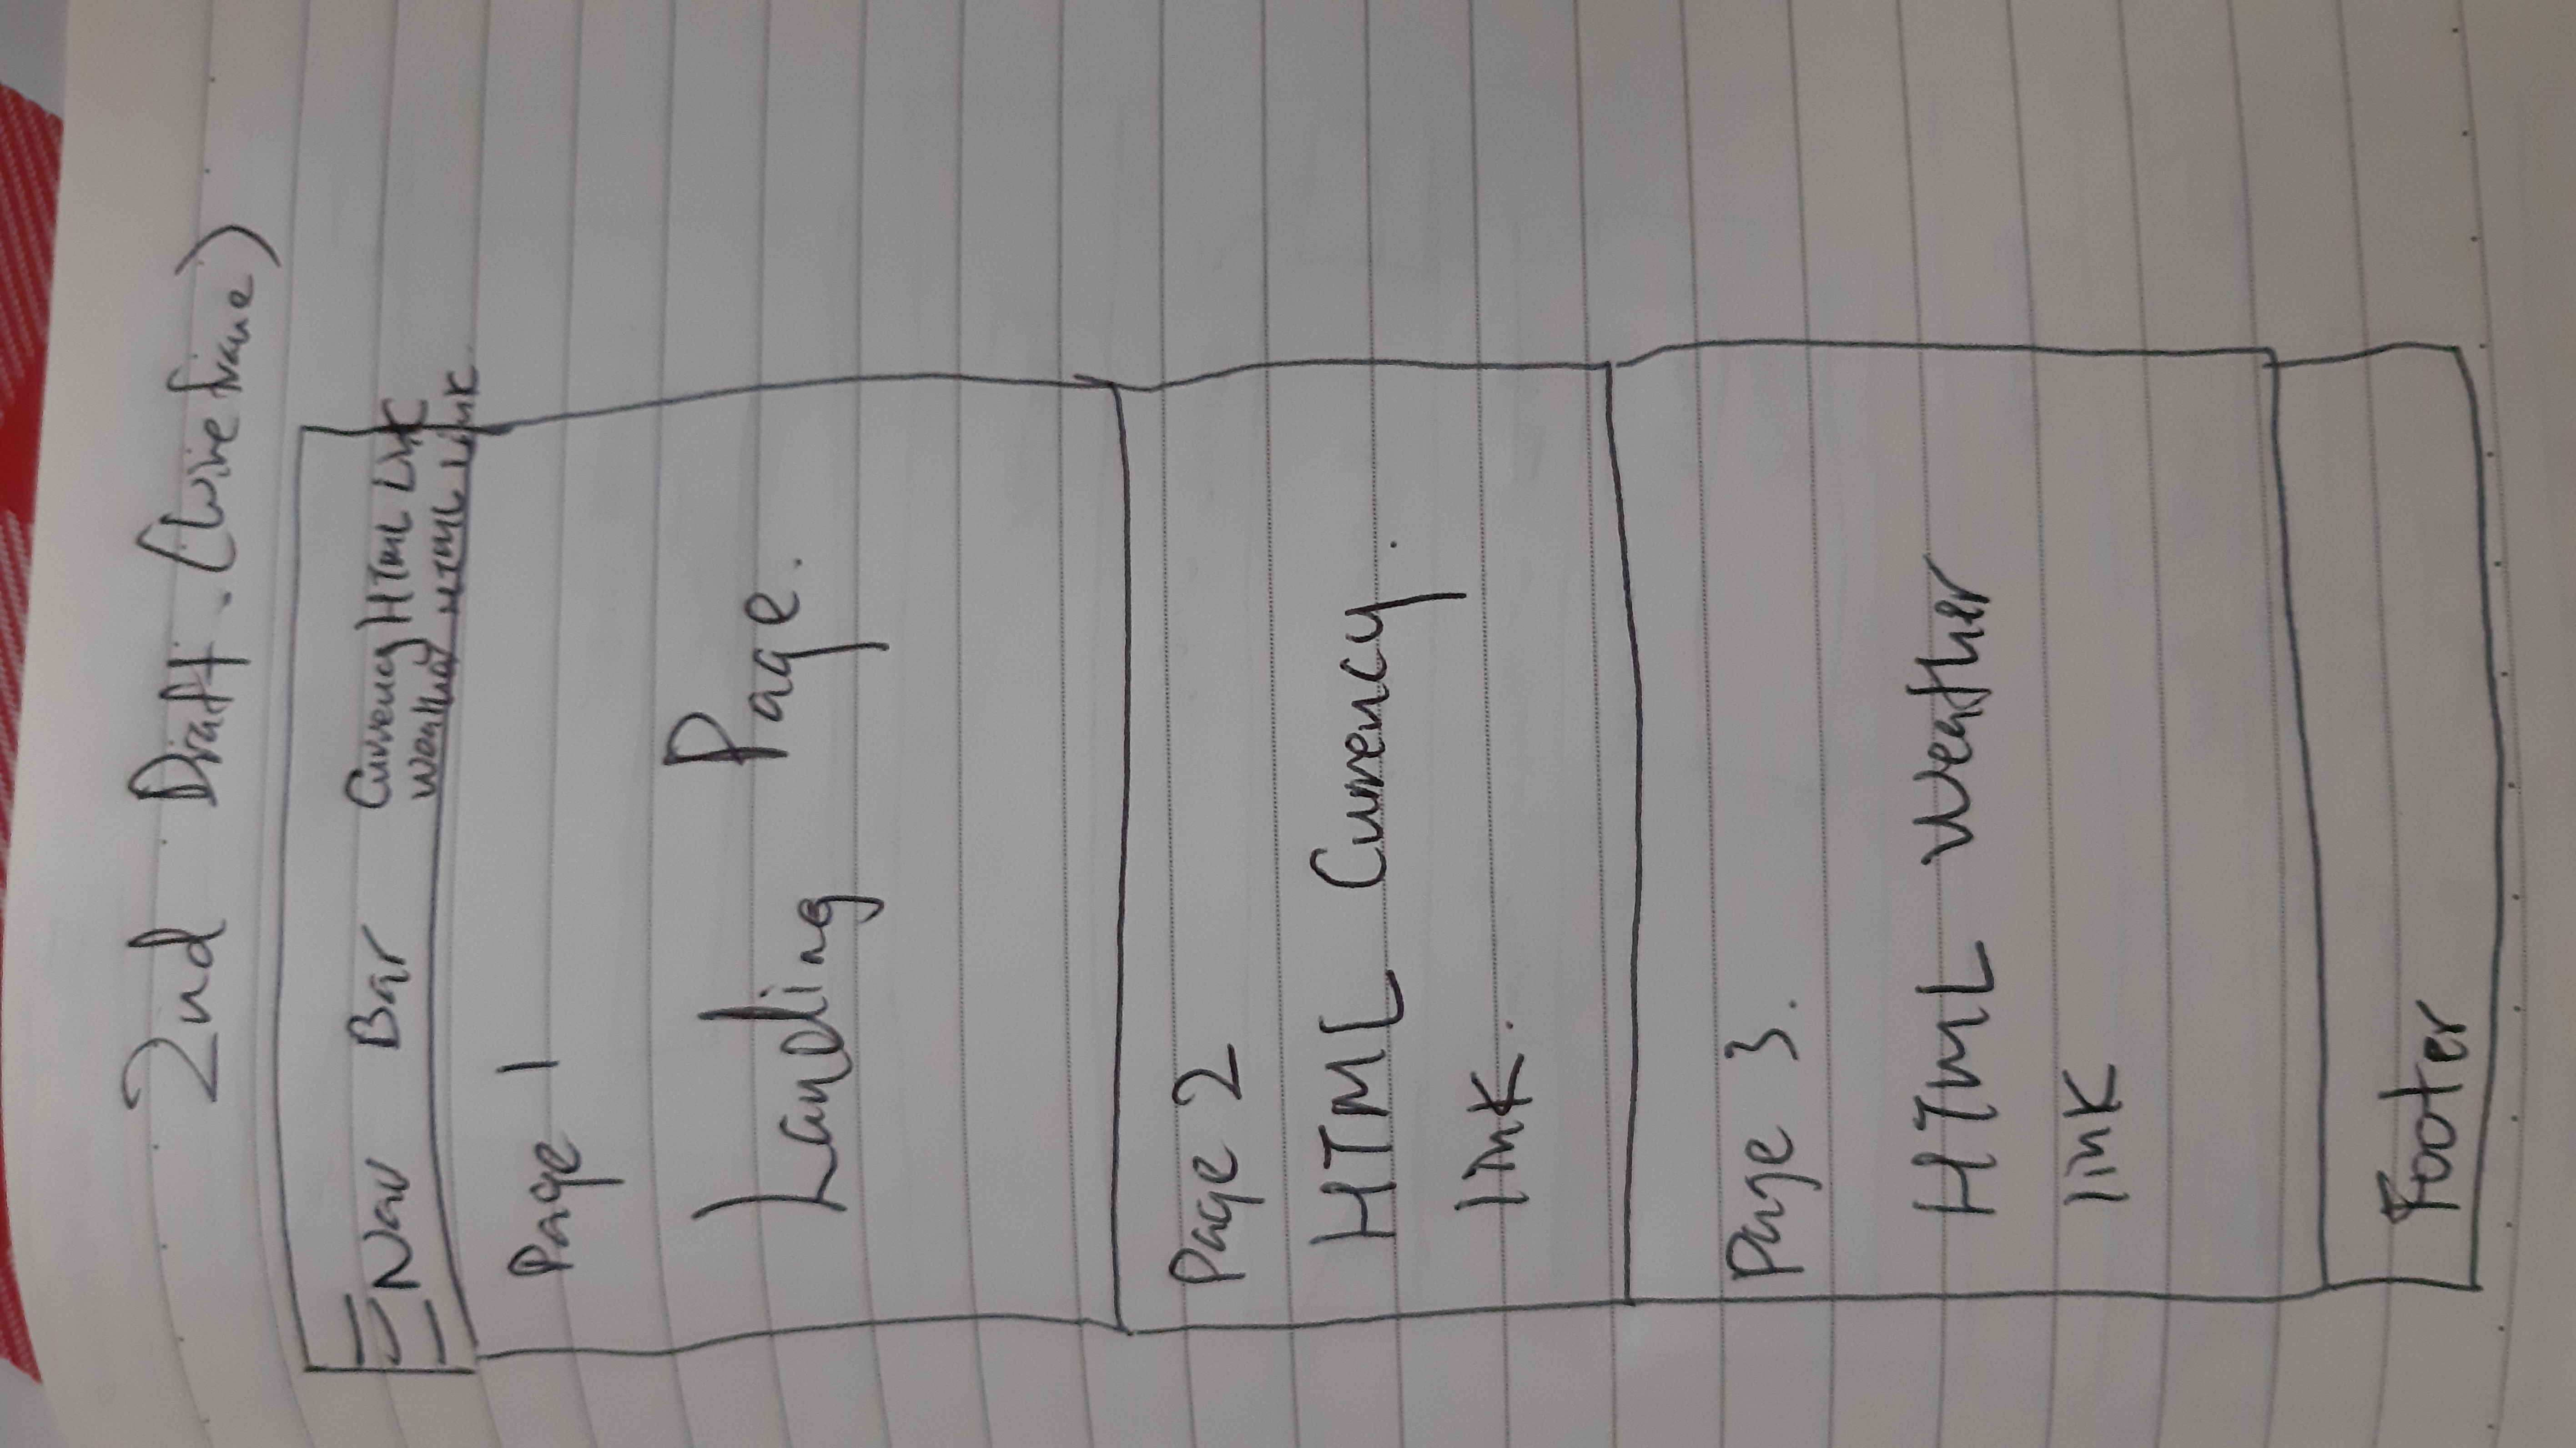 2nd Draft. (Wireframe)
Nav Bar Currency HTML Link
Weather HTML Link
Page 1
Landing Page.
Page 2
HTML Currency.
link.
Page 3.
HTML Weather
link
Footer